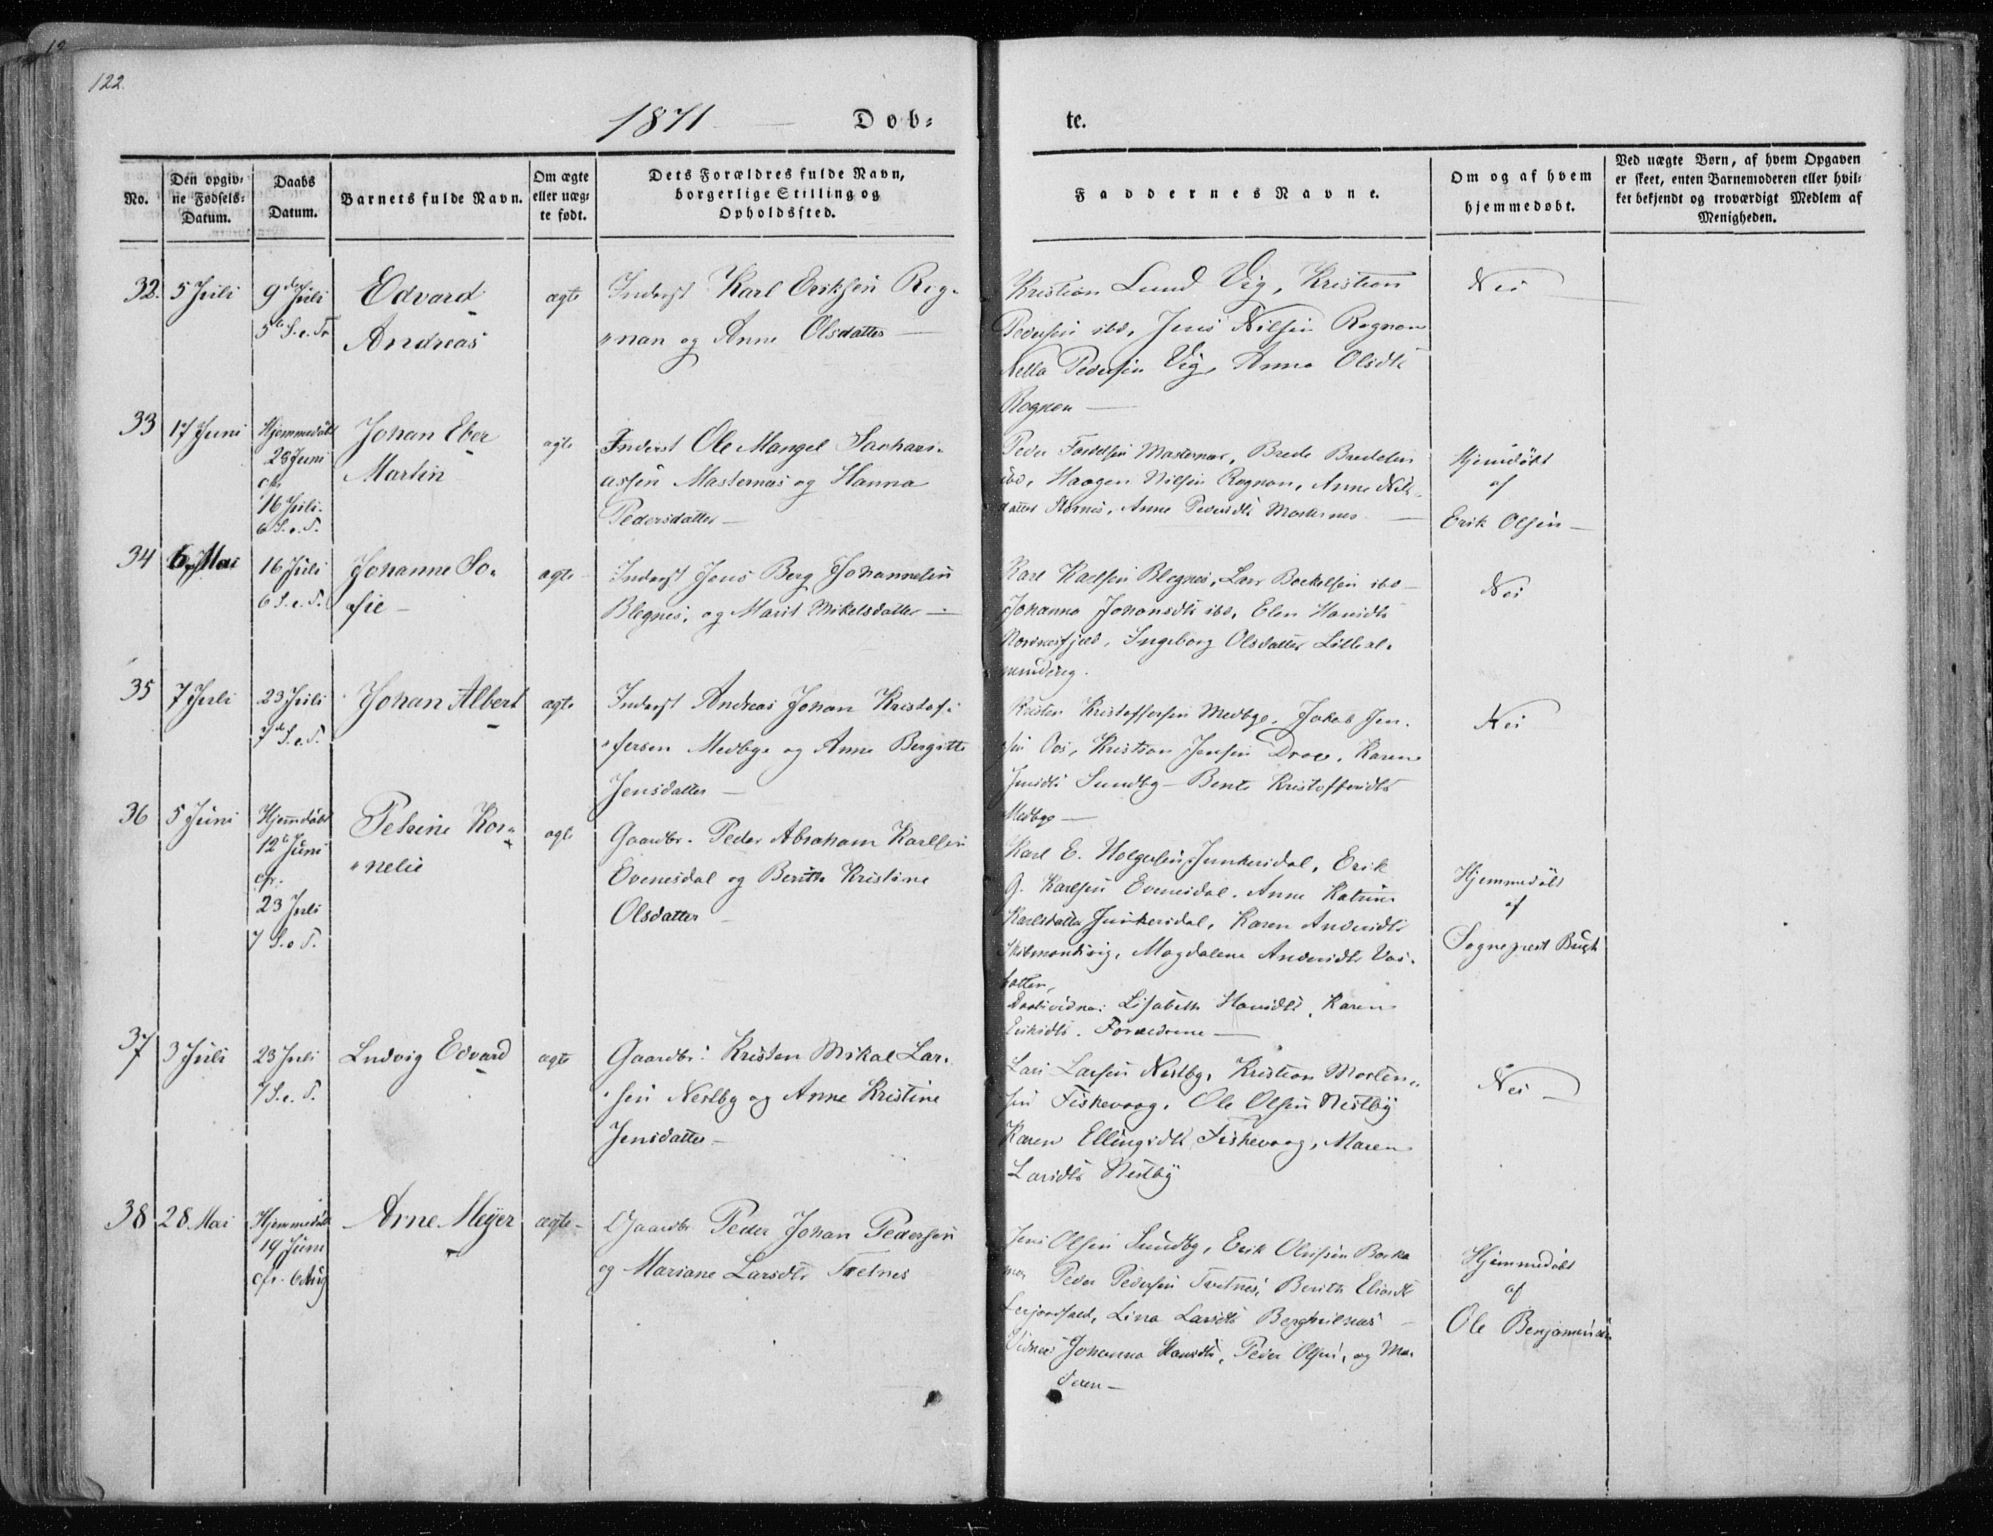 122.
1871 — Døb=
te.
No.
Den opgiv=
ne Fødsels=
Datum.
Daabs
Datum.
Barnets fulde Navn.
Om ægte
eller uæg=
te født.
Dets Forældres fulde Navn,
borgerlige Stilling og
Opholdssted.
Faddernes Navne.
Om og af hvem
hjemmedøbt.
Ved uægte Børn, af hvem Opgaven
er skeet, enten Barnemoderen eller hvil=
ket bekjendt og troværdigt Medlem af
Menigheden.
32.
5 Juli
9 Juli
5 S. e. Tr
Edvard
Andreas
ægte
Inderst Karl Eriksen Rog-
nan og Anne Olsdatter —
Kristian Lund Vig, Kristian
Pedersen ibd, Jens Nilsen Rognan
Pedersen Vig, Anna Olsdtr
Rognan —
Nei
33
17 Juni
Hjemmedøbt
28 Juni
cfr.
16 Juli
6 S. e. T.
Johan Eber
Martin
ægte
Inderst Ole Mangel Sachari-
assen Masternes og Hanna
Pedersdatter —
Peder Masternes, Brede Bredesen
ibd, Haagen Nilsen Rognan, Anne Nils-
datter Stornes, Anne Pedersdtr Masternes —
Hjemdøbt
af
Erik Olsen —
34
6 Mai
16 Juli
6 S. e. T.
Johanne So-
fie —
ægte
Inderst Jens Berg Johannesen
Blegnes, og Marit Mikelsdatter —
Karl Karlsen Blegnes, Lars ibd —
Johanna Johansdtr ibd, Elen Hansdtr
Ingeborg Olsdatter
Nei
35
7 Juli
23 Juli
7 S. e. T.
Johan Albert
ægte
Inderst Andreas Johan Kristof-
fersen Medbye og Anne Bergitte
Jensdatter —
Kristen Kristoffersen Medbye, Jakob Jen-
sen Kristian Jensen Karen
Jensdtr Sundby — Bente Kristoffersdtr
Medbye —
Nei
36
5 Juni
Hjemdøbt
12 Juni
cfr.
23 Juli
7 S. e. T.
Petrine Kor-
nelie
ægte
Gaardbr. Peder Abraham Karlsen
Evenesdal og Berith Kristine
Olsdatter —
Karl E. Holgersen Junkersdal, Erik
G. Karlsen Evenesdal, Anne Katrine
Karlsdatter Junkersdal, Karen Andersdtr
Skibmandsvig, Magdalene Andersdtr Vas-
botten,
Daabsvidner: Lisabeth Hansdtr, Karen
Eriksdtr. Forældrene —
Hjemmedøbt
af
Sogneprest
37
3 Juli
23 Juli
7 S. e. T.
Ludvig Edvard
ægte
Gaardbr: Kristen Mikal Lar-
sen Nestby og Anne Kristine
Jensdatter —
Lars Larsen Nestby, Kristian Morten-
sen Fiskevaag, Ole Olsen Nestby
Karen Ellingsdtr Fiskevaag, Maren
Larsdtr Nestby
Nei —
38
28 Mai
Hjemmedøbt
19 Juni
cfr. 6 Aug
Arne Meyer
ægte —
Gaardbr. Peder Johan Pedersen
og Mariane Larsdtr Tvetnes
Jens Olsen Sundby, Erik
Peder Pedersen Tvetnes, Berith
Lina Larsdtr —
Vidner Johanna Hansdtr, Peder Olsen, og Mo-
deren —
Hjemmedøbt
af
Ole Benjaminsen